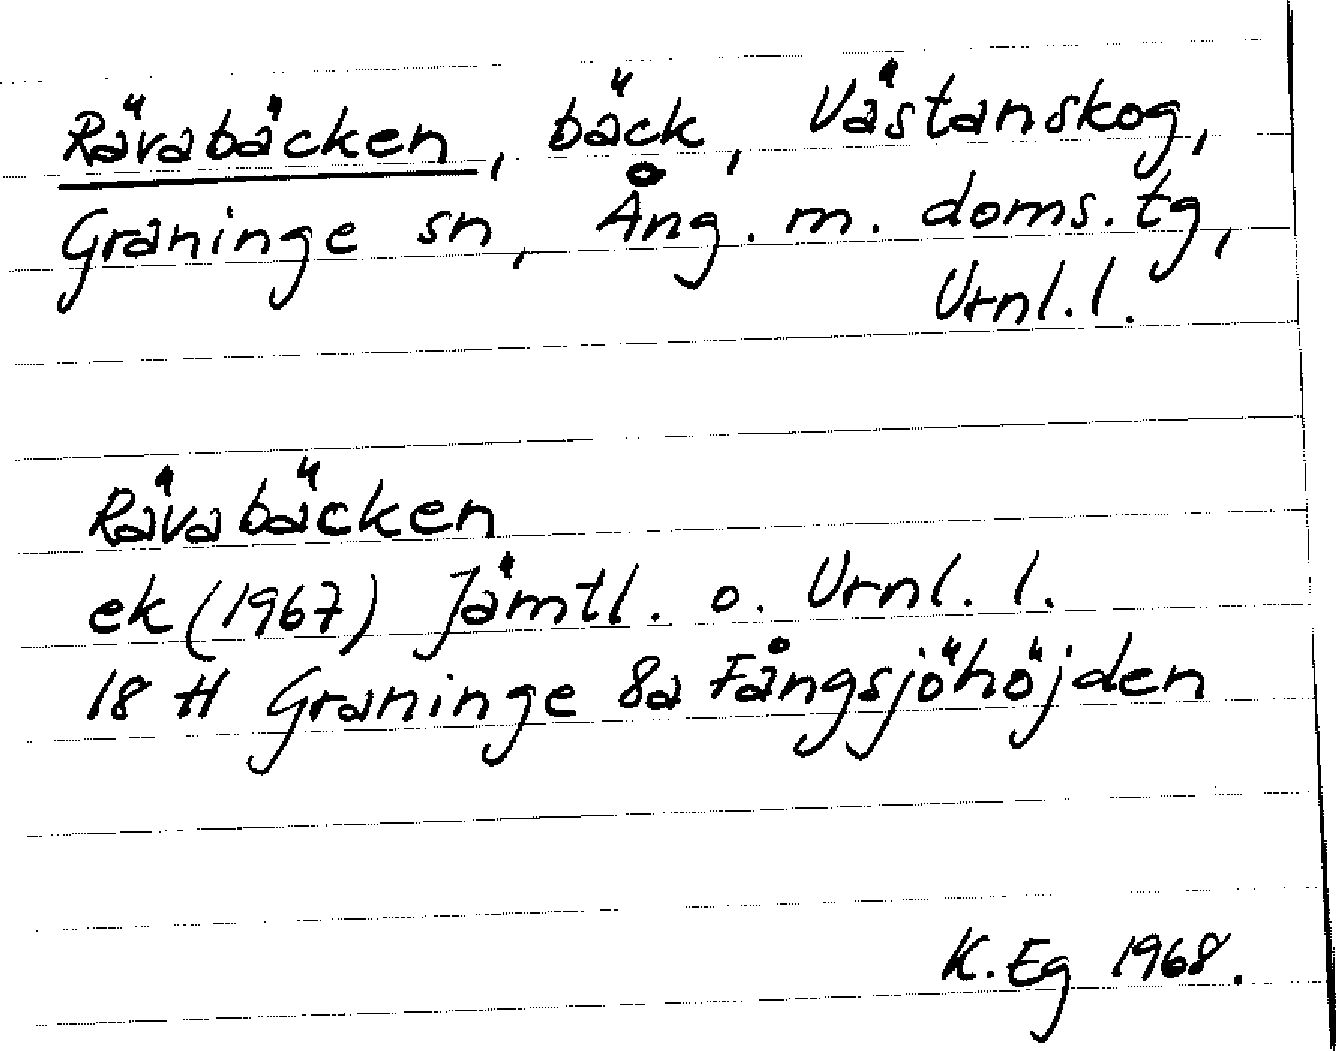 Rävabäcken, bäck, Västanskog,
Graninge sn, Ång. m. doms. tg,
Vrnl. l.
Rävabäcken
ek (1967) Jämtl. o. Vrnl. l.
18 H Graninge 8a Fångsjöhöjden
K. Eg 1968.